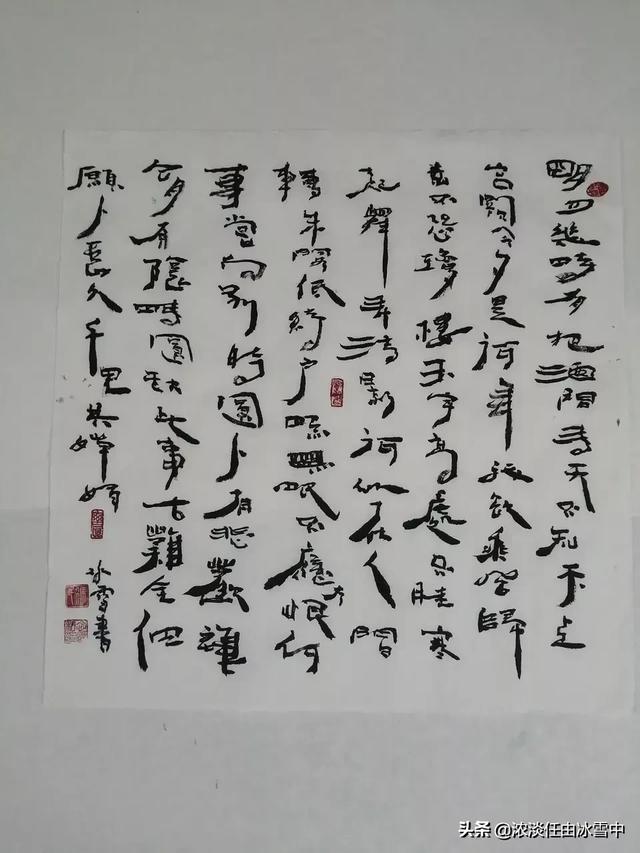 明月幾時有把酒問青天不知天上
宮闕今夕是何年我欲乘風歸
去恐瓊樓玉宇高處不勝寒
起舞弄清影何似在人間
轉朱閣低綺戶照無眠不應有恨何
事向別時圓人有悲歡離
合月有陰晴圓缺此事古難全但
願人長久千里共嬋娟
冰雪書
头条 @浓淡任由冰雪中